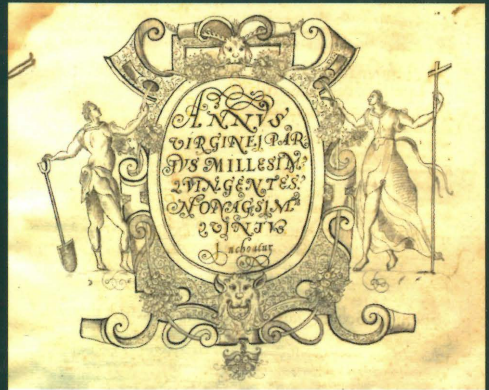 ANNVS
VIRGINEI PAR
TVS MILLESIM⁹
QVINGENTES⁹
NONAGSIM⁹
QVINTVS
Inchoatur